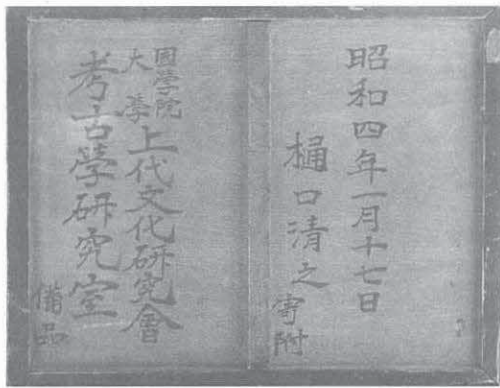 昭和四年一月十七日
樋口清之
寄附
國學院
大學
上代文化研究會
考古學研究室
備品